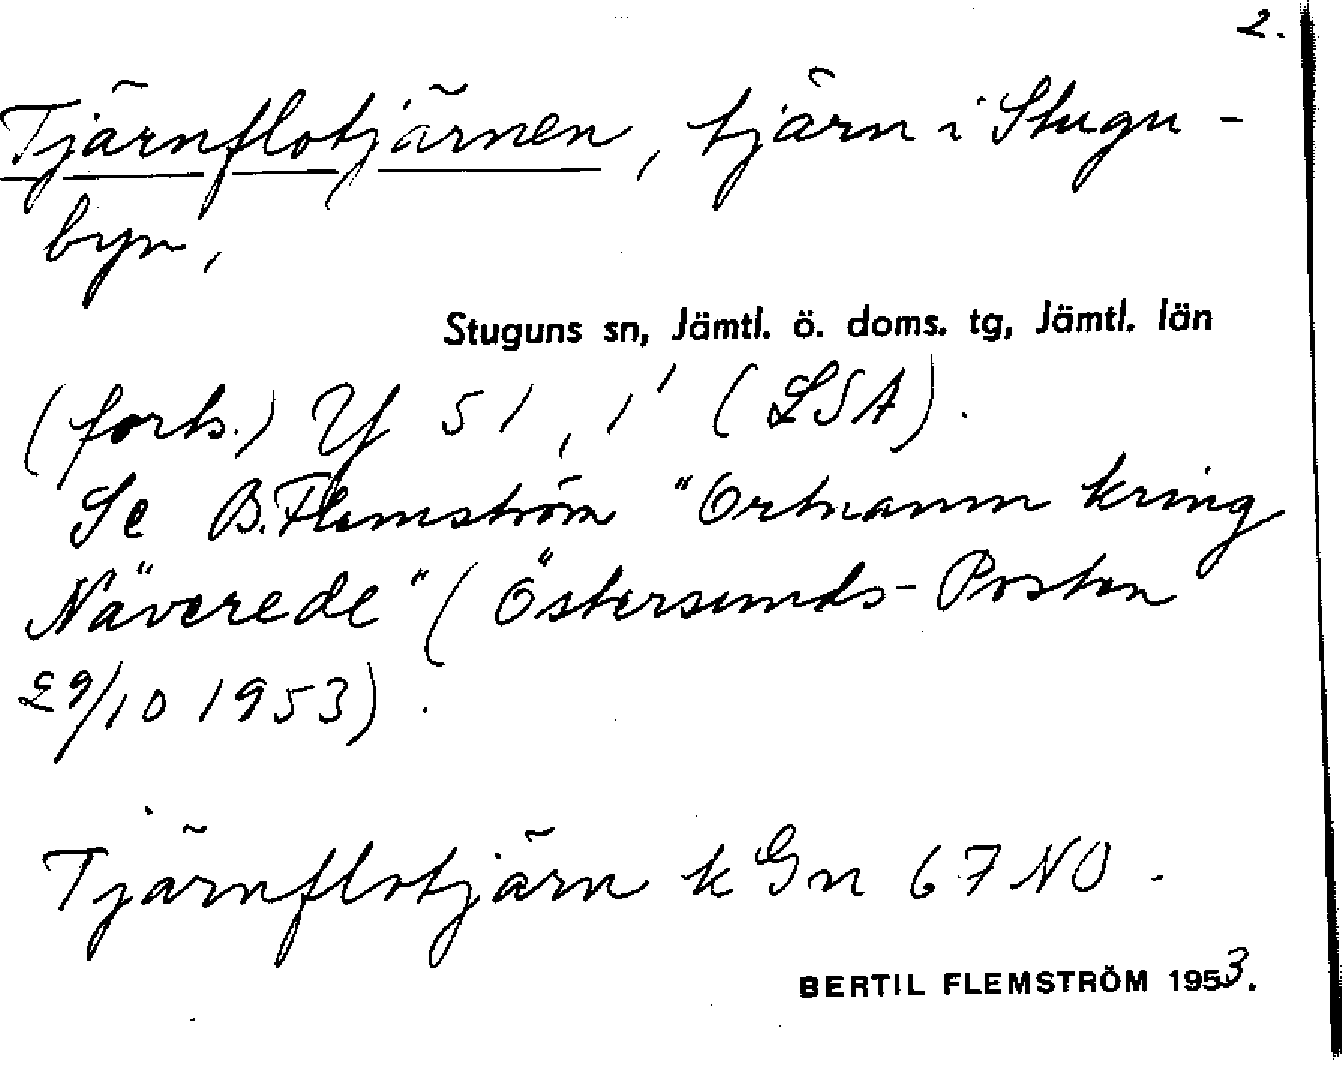 2.
Tjärnflotjärnen, tjärn i Stugu-
byn,
Stuguns sn, Jämtl. ö. doms. tg, Jämtl. län
(forts.) Y 51, 1' (LSA).
Se B. Flemström "Ortnamn kring
Näverede" (Östersunds-Posten
29/10 1953).
Tjärnflotjärn k Gn 67 NO.
BERTIL FLEMSTRÖM 1953.